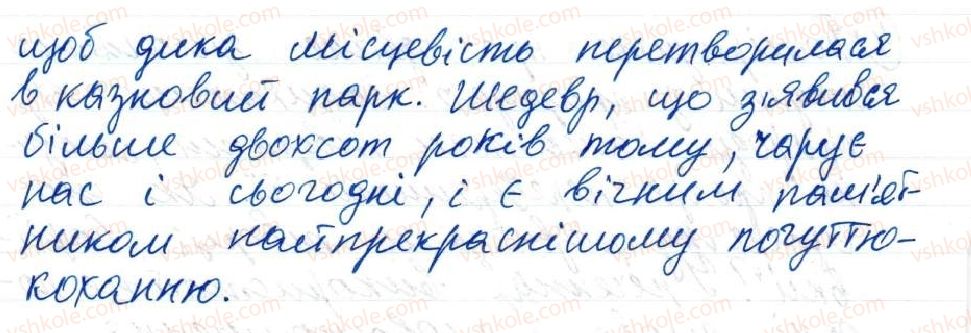 щоб дика місцевість перетворилася
в казковий парк. Шедевр, що з'явився
більше двохсот років тому, чарує
нас і сьогодні, і є вічним пам'ят-
ником найпрекраснішому почуттю-
коханню.